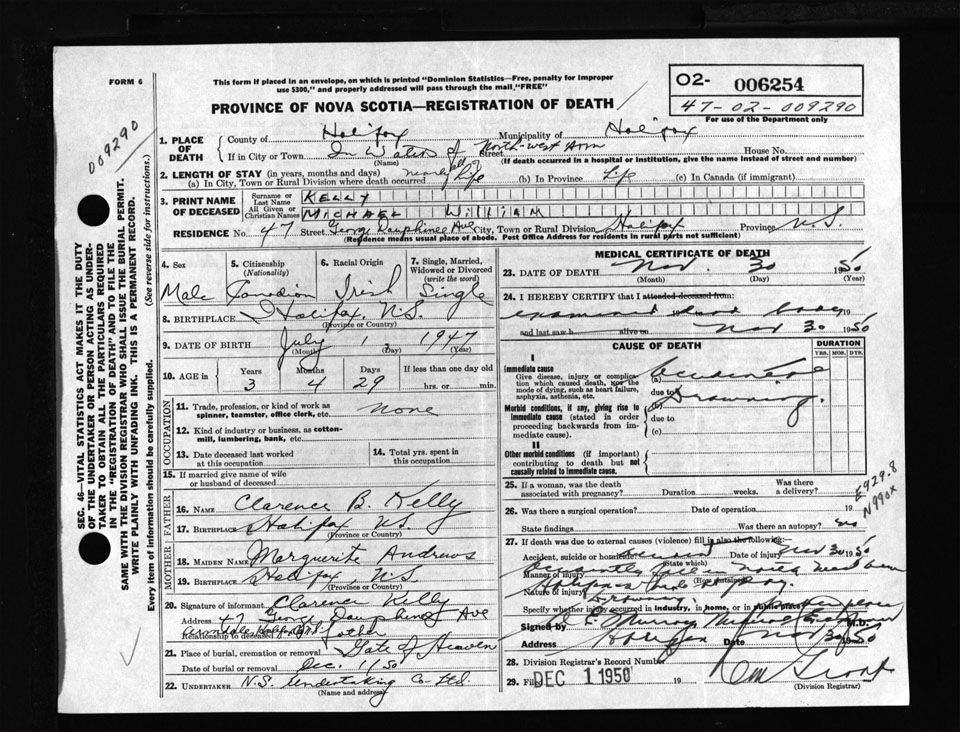 FORM 6
This form if placed in an envelope, on which is printed "Dominion Statistics—Free, penalty for improper
use $300," and properly addressed will pass through the mail, "FREE"
O2- 006254
47-02-009290
PROVINCE OF NOVA SCOTIA—REGISTRATION OF DEATH
For use of the Department only
009290
SEC. 46—VITAL STATISTICS ACT MAKES IT THE DUTY
OF THE UNDERTAKER OR PERSON ACTING AS UNDER-
TAKER TO OBTAIN ALL THE PARTICULARS REQUIRED
IN THE "REGISTRATION OF DEATH" AND TO FILE THE
SAME WITH THE DIVISION REGISTRAR WHO SHALL ISSUE THE BURIAL PERMIT.
WRITE PLAINLY WITH UNFADING INK. THIS IS A PERMANENT RECORD.
Every item of information should be carefully supplied. (See reverse side for instructions.)
1. PLACE OF DEATH
County of Halifax Municipality of Halifax
If in City or Town In Waters of Street North-west Arm House No.
(Name) (If death occurred in a hospital or institution, give the name instead of street and number)
2. LENGTH OF STAY (in years, months and days)
(a) In City, Town or Rural Division where death occurred nearly all of Life (b) In Province Life (c) In Canada (if immigrant)
3. PRINT NAME OF DECEASED
Surname or Last Name KELLY
All Given or Christian Names MICHAEL WILLIAM
RESIDENCE No. 47 Street George Dauphinee Ave City, Town or Rural Division Halifax Province N.S.
(Residence means usual place of abode. Post Office Address for residents in rural parts not sufficient)
4. Sex Male
5. Citizenship (Nationality) Canadian
6. Racial Origin Irish
7. Single, Married, Widowed or Divorced (write the word) Single
8. BIRTHPLACE Halifax, N.S.
(Province or Country)
9. DATE OF BIRTH July 1 1947
(Month) (Day) (Year)
10. AGE in Years Months Days If less than one day old
3 4 29 hrs. or min.
OCCUPATION
11. Trade, profession, or kind of work as
spinner, teamster, office clerk, etc. None
12. Kind of industry or business, as cotton-
mill, lumbering, bank, etc.
13. Date deceased last worked
at this occupation
14. Total yrs. spent in
this occupation
15. If married give name of wife
or husband of deceased
FATHER
16. NAME Clarence B. Kelly
17. BIRTHPLACE Halifax N.S.
(Province or Country)
MOTHER
18. MAIDEN NAME Marguerite Andrews
19. BIRTHPLACE Halifax, N.S.
(Province or Country)
20. Signature of informant Clarence Kelly
Address 47 George Dauphinee Ave
Relationship to deceased Father
21. Place of burial, cremation or removal Gate of Heaven
Date of burial or removal Dec. 1/50
22. UNDERTAKER N.S. Undertaking Co Ltd.
(Name and address)
MEDICAL CERTIFICATE OF DEATH
23. DATE OF DEATH Nov. 30 1950
(Month) (Day) (Year)
24. I HEREBY CERTIFY that I attended deceased from
examined dead body 19
and last saw h alive on Nov 30 1950
CAUSE OF DEATH
DURATION
YRS. MOS. DYS.
I
Immediate cause
Give disease, injury or compli-
cation which caused death, not the
mode of dying, such as heart failure,
asphyxia, asthenia, etc.
(a) Accidental
due to
Morbid conditions, if any, giving rise to
immediate cause (stated in order
proceeding backwards from im-
mediate cause).
(b) Drowning.
due to
(c)
II
Other morbid conditions (if important)
contributing to death but not
causally related to immediate cause.
25. If a woman, was the death
associated with pregnancy? Duration weeks. Was there
a delivery?
E929.8
N990x
26. Was there a surgical operation? Date of operation 19
State findings Was there an autopsy? no
27. If death was due to external causes (violence) fill in also the following:—
Accident, suicide or homicide? Date of injury Nov 30 1950
(State which)
Manner of injury accidently fell in North West Arm
(How sustained)
Nature of injury Drowning.
Specify whether injury occurred in industry, in home, or in public place other place
Signed by Murray M.D.
Address Halifax Date Nov 30 1950
28. Division Registrar's Record Number
29. Filed DEC 1 1950 19
(Division Registrar)